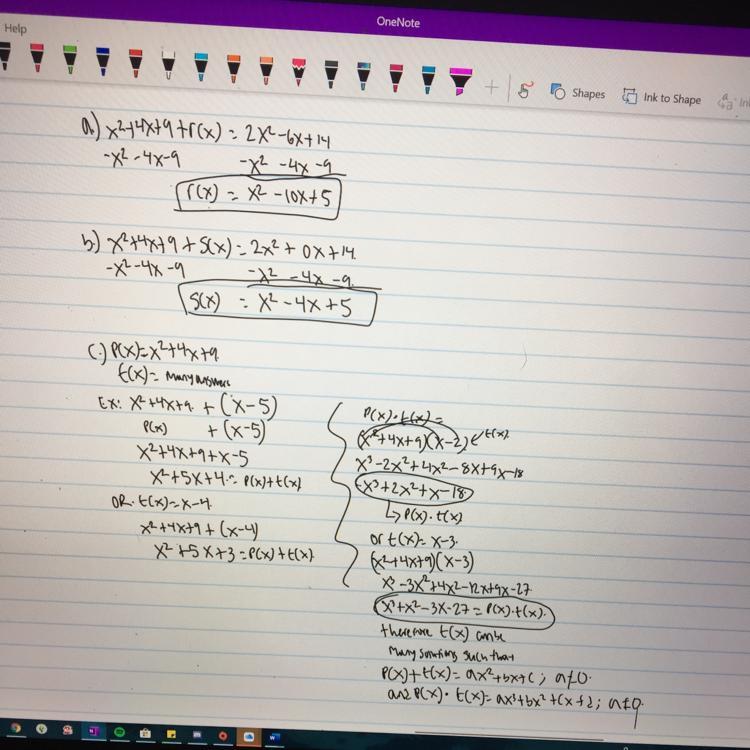 OneNote
Help
Shapes
Ink to Shape
a) x²+4x+9+r(x) = 2x²-6x+14
-x²-4x-9 -x² -4x -9
r(x) = x² -10x+5
b) x²+4x+9+S(x) = 2x² + 0x+14
-x²-4x-9 -x² -4x -9
S(x) = x²-4x+5
c.) P(x)=x²+4x+9
t(x)= many answers
Ex: x²+4x+9 + (x-5)
P(x) + (x-5)
x²+4x+9+x-5
x²+5x+4 = P(x)+t(x)
OR. t(x)=x-4
x²+4x+9+(x-4)
x²+5x+3=P(x)+t(x)
P(x)·t(x)=
(x²+4x+9)(x-2)←t(x)
x³-2x²+4x²-8x+9x-18
x³+2x²+x-18
↳P(x)·t(x)
or t(x)=x-3
(x²+4x+9)(x-3)
x³-3x²+4x²-12x+9x-27
x³+x²-3x-27=P(x)·t(x)
therefore t(x) can be
many solutions such that
P(x)+t(x)=ax²+bx+c; a≠0.
and P(x)·t(x)=ax³+bx²+cx+d;